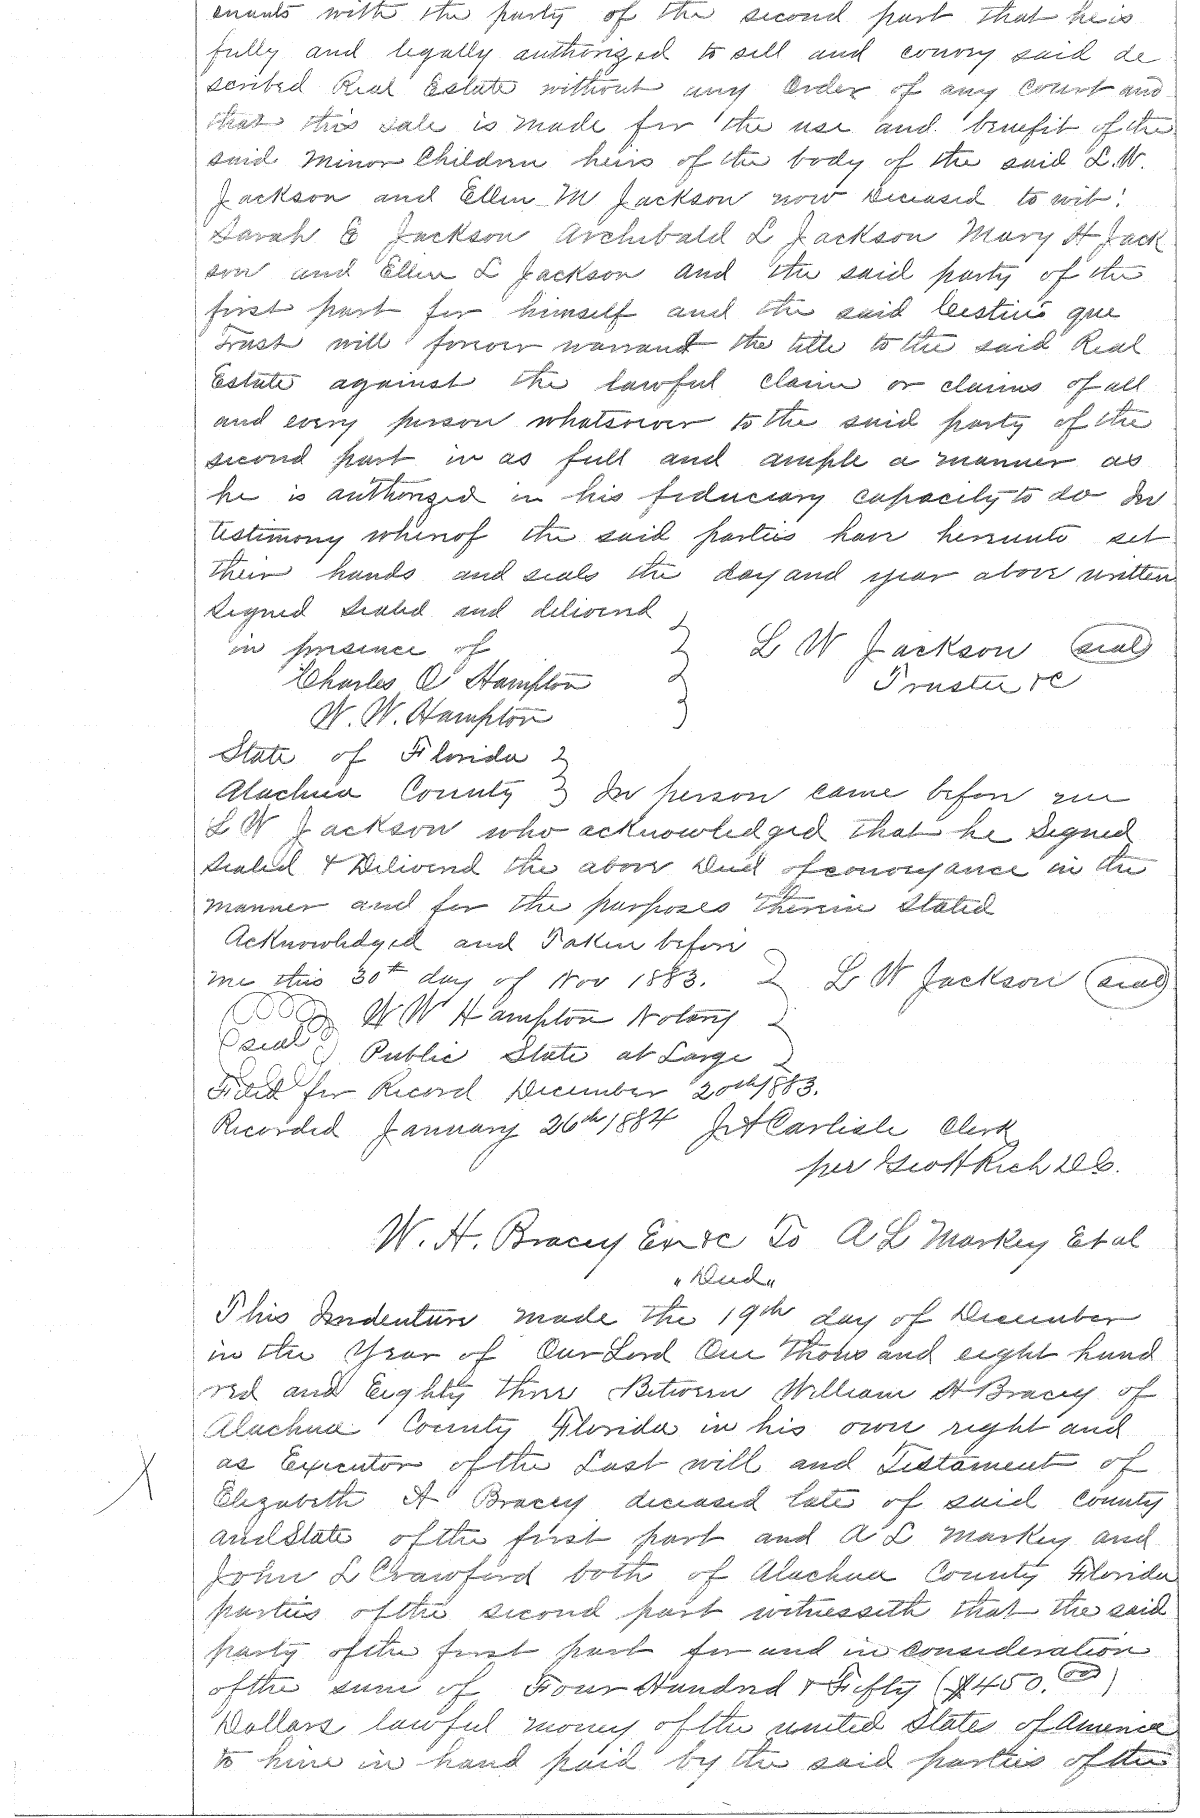 enants with the party of the second part that he is
fully and legally authorized to sell and convey said de
scribed Real Estate without any Order of any Court and
that this sale is made for the use and benefit of the
said Minor Children heirs of the body of the said L. W.
Jackson and Ellen M Jackson now Deceased to wit:
Sarah E Jackson Archibald L Jackson Mary H Jack
son and Ellen L Jackson and the said party of the
first part for himself and the said Cestius que
Trust will forever warrant the title to the said Real
Estate against the lawful claim or claims of all
and every person whatsoever to the said party of the
second part in as full and ample a manner as
he is authorized in his fiduciary capacity to do In
testimony whereof the said parties have hereunto set
their hands and seals the day and year above written
Signed Sealed and delivered
in presence of L W Jackson (seal)
Charles O Hampton Trustee &c
W. W. Hampton
State of Florida
Alachua County In person came before me
L W Jackson who acknowledged that he Signed
Sealed & Delivered the above Deed of conveyance in the
manner and for the purposes therein Stated
Acknowledged and Taken before
me this 30th day of Nov 1883. L W Jackson (seal)
W W Hampton Notary
(seal) Public State at Large
Filed for Record December 20th 1883.
Recorded January 26th 1884 J A Carlisle Clerk
per Geo H Rich D C.
W. H. Bracey Ex &c To A L Markey Et al
"Deed"
This Indenture made the 19th day of December
in the Year of Our Lord One Thousand eight hund
red and Eighty three Between William H Bracey of
Alachua County Florida in his own right and
as Executor of the Last will and Testament of
Elizabeth A Bracey deceased late of said County
and State of the first part and A L Markey and
John L Crawford both of Alachua County Florida
parties of the second part witnesseth that the said
party of the first part for and in consideration
of the sum of Four Hundred & Fifty ($450.00)
Dollars lawful money of the united States of America
to him in hand paid by the said parties of the